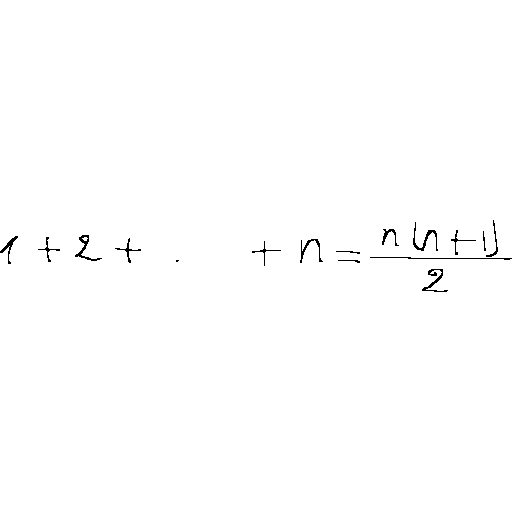 1 + 2 + . + n = \frac{n(n+1)}{2}